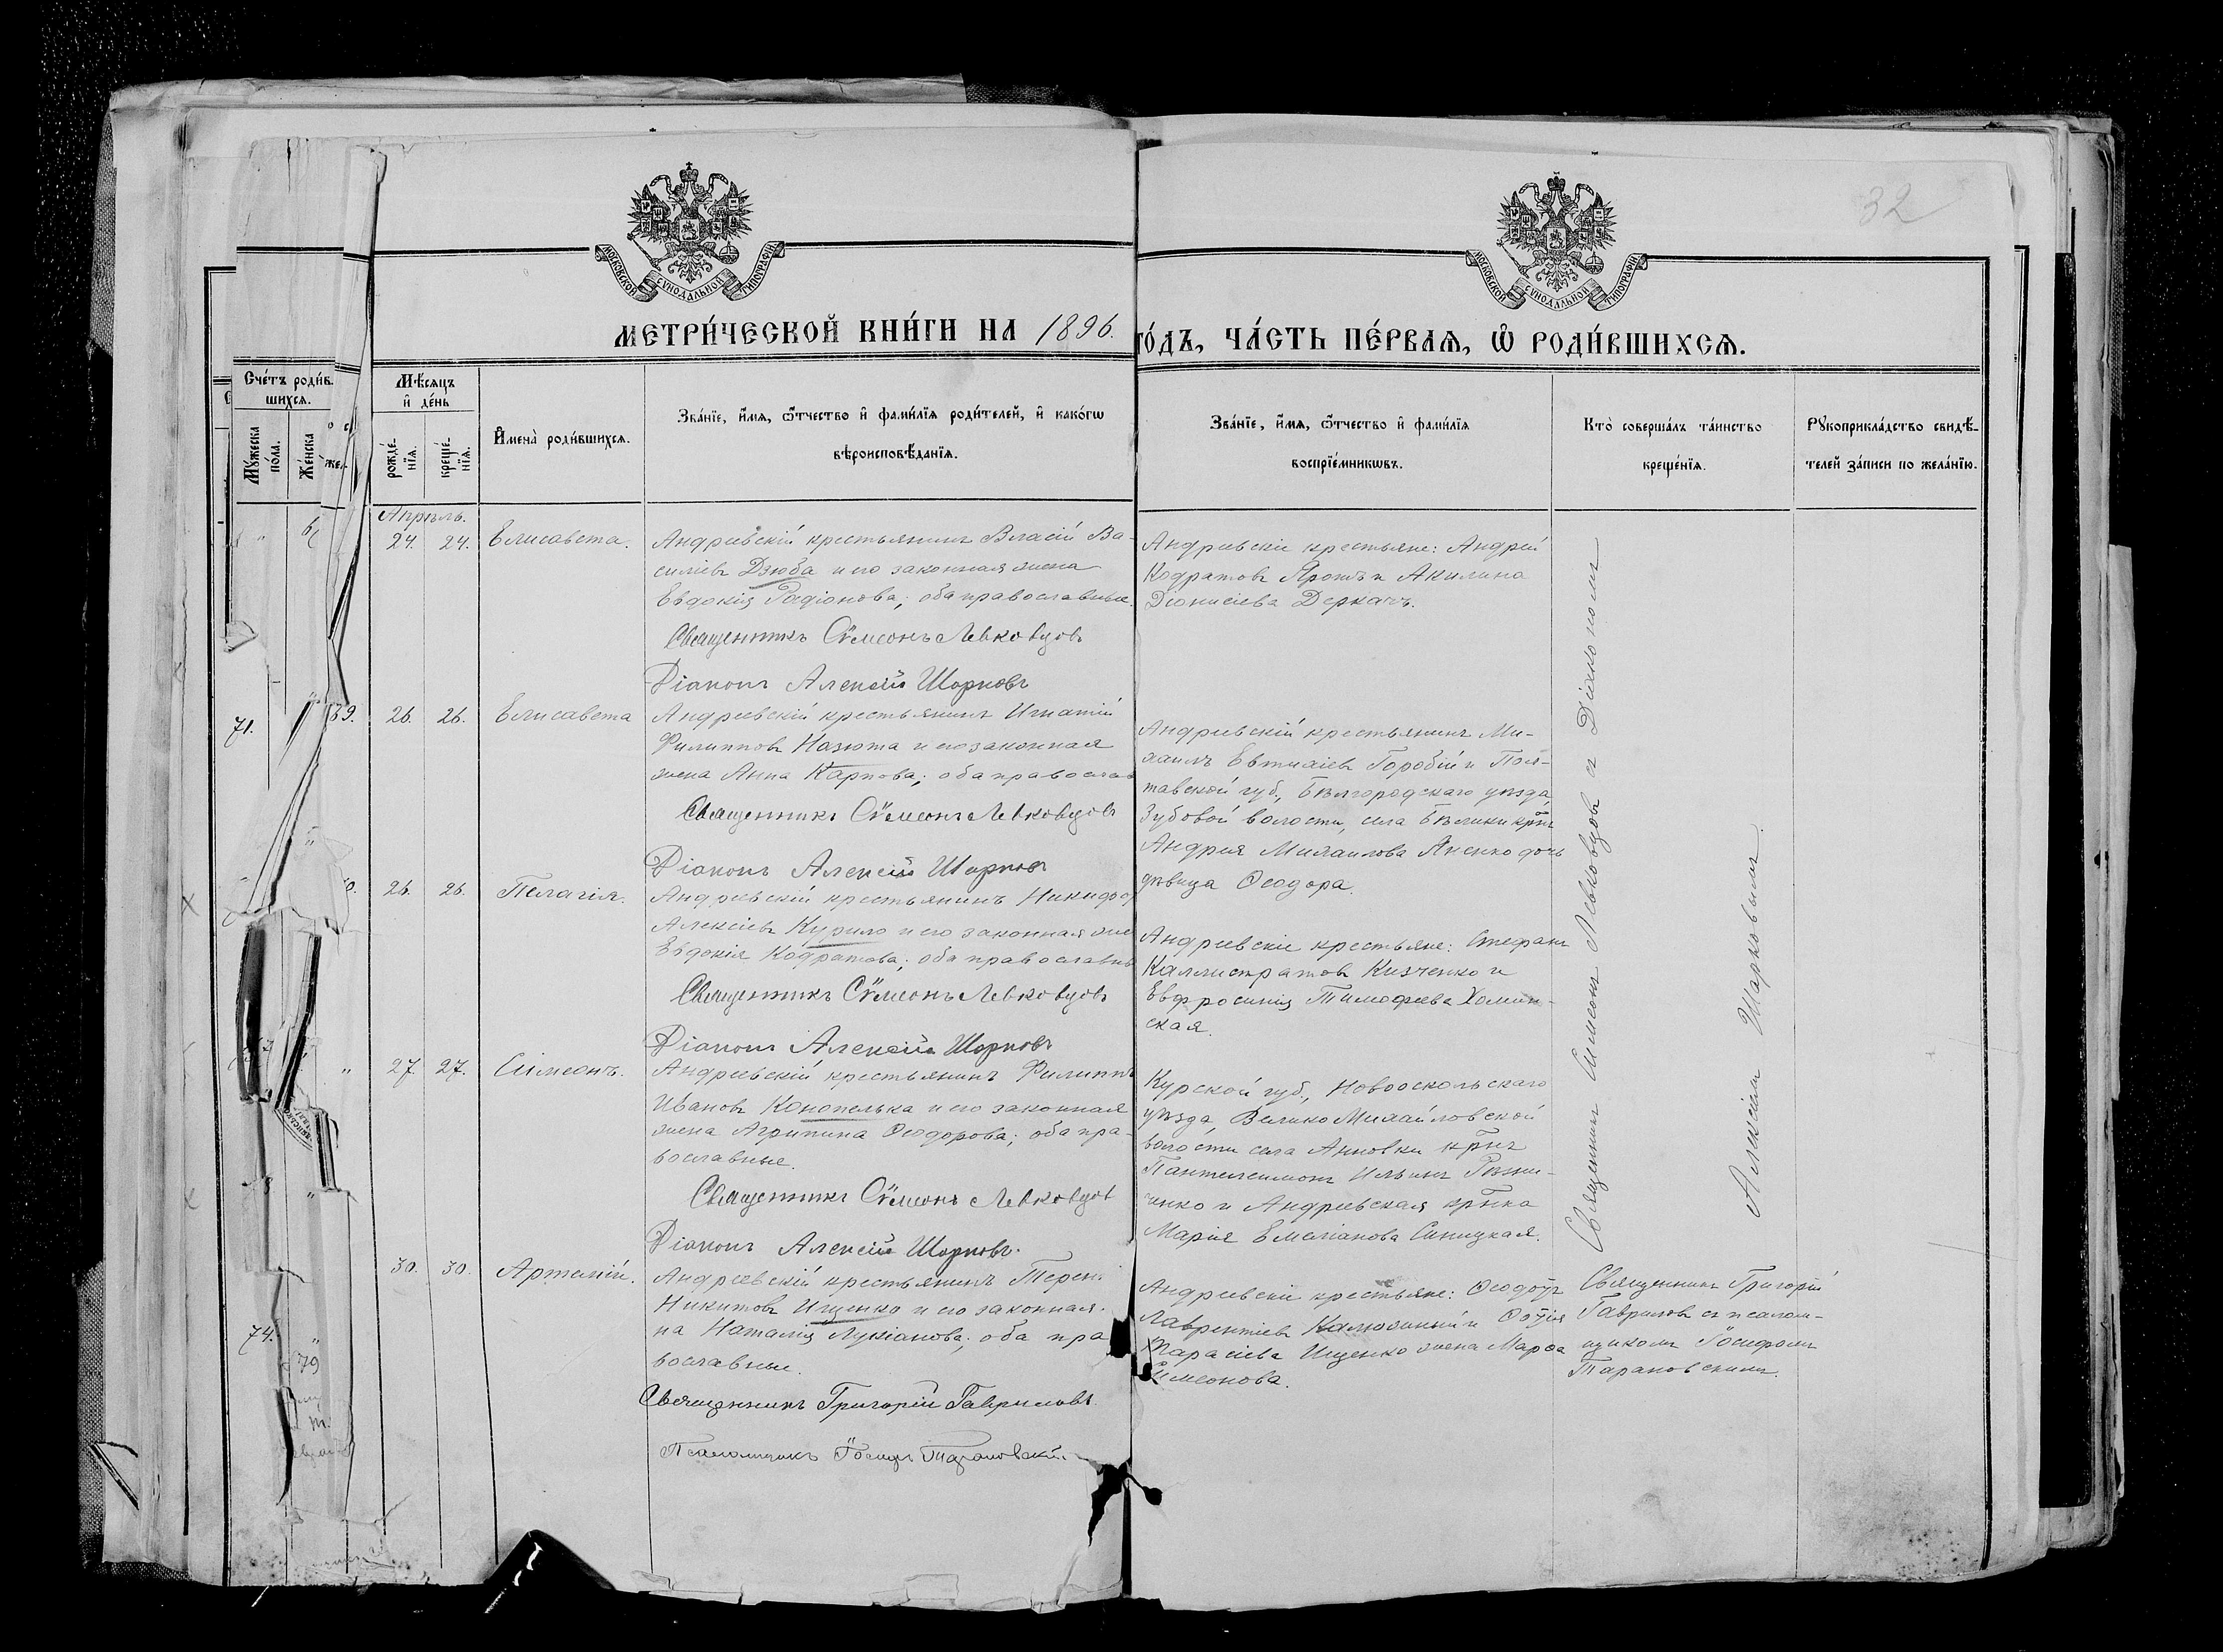 32
МОСКОВСКОЙ СѴНОДАЛЬНОЙ ТИПОГРАФІИ
МОСКОВСКОЙ СѴНОДАЛЬНОЙ ТИПОГРАФІИ
МЕТРИ́ЧЕСКОЙ КНИ́ГИ НА 1896.
ГО́ДЪ, ЧА́СТЬ ПЕ́РВАЯ, Ѡ҆ РОДИ́ВШИХСЯ.
Сче́тъ роди́в-
шихся.
Мꙋ́жеска
по́ла.
Же́нска
Мѣ́сяцъ
и҆ де́нь
рожде́-
нїя.
креще́-
нїя.
И҆мена̀ роди́вшихся.
Зва́нїе, и҆́мя, ѻ҆́тчество и҆ фами́лїя роди́телей, и҆ како́гѡ
вѣроисповѣ́данїя.
Зва́нїе, и҆́мя, ѻ҆́тчество и҆ фами́лїя
воспрїе́мникѡвъ.
Кто̀ соверша́лъ та́инство
креще́нїя.
Рꙋкоприкла́дство свидѣ́-
телей за́писи по жела́нїю.
Апрѣль.
24. 24. Елисавета.
Андреевскій крестьянинъ Власій Ва-
силіевъ Дзюба и его законная жена
Евдокія Радіонова; оба православные.
Священникъ Сѵмеонъ Левковцовъ
Діаконъ Алексій Шарковъ
Андреевскіе крестьяне: Андрей
Кодратовъ Ярошъ и Акилина
Діонисіева Деркачъ.
71.
39. 26. 26. Елисавета
Андреевскій крестьянинъ Игнатій
Филипповъ Назюта и его законная
жена Анна Карпова; оба православ
Священникъ Сѵмеонъ Левковцовъ
Діаконъ Алексій Шарковъ
Андреевскій крестьянинъ Ми-
хаилъ Евтихіевъ Горобій и Пол-
тавской губ., Бѣлгородскаго уѣзда,
Зубовой волости, села Бѣлики крнъ
Андрея Михаилова Яненко дочь
дѣвица Ѳеодора.
26. 26. Пелагія.
Андреевскій крестьянинъ Никифор
Алексіевъ Курило и его законная же
Евдокія Кодратова; оба православны
Священникъ Сѵмеонъ Левковцовъ
Діаконъ Алексій Шарковъ
Андреевскіе крестьяне: Стефанъ
Каллистратовъ Кизченко и
Евфросинія Тимофеева Хомин-
ская.
27. 27. Сімеонъ.
Андреевскій крестьянинъ Филиппъ
Ивановъ Конопелька и его законная
жена Агрипина Ѳеодорова; оба пра-
вославные.
Священникъ Сѵмеонъ Левковцовъ
Діаконъ Алексій Шарковъ.
Курской губ., Новооскольскаго
уѣзда, Велико Михайловской
волости села Анновки крнъ
Пантелеимонъ Ильинъ
и Андреевская крнка
Марія Емеліанова Синицкая.
Священникъ Симеонъ Левковцовъ съ Діакономъ
Алексіемъ Шарковымъ.
74.
30. 30. Артемій.
Андреевскій крестьянинъ Терен
Никитовъ Ищенко и его законная
на Наталія Лукіанова; оба пра
вославные.
Священникъ Григорій Гавриловъ.
Псаломщикъ Іосифъ Тарановскій
Андреевскіе крестьяне: Ѳеодоръ
Лаврентіевъ Калюжный и
Тарасіева Ищенко жена Марѳа
Симеонова.
Священникъ Григорій
Гавриловъ съ псалом-
щикомъ Іосифомъ
Тарановскимъ.